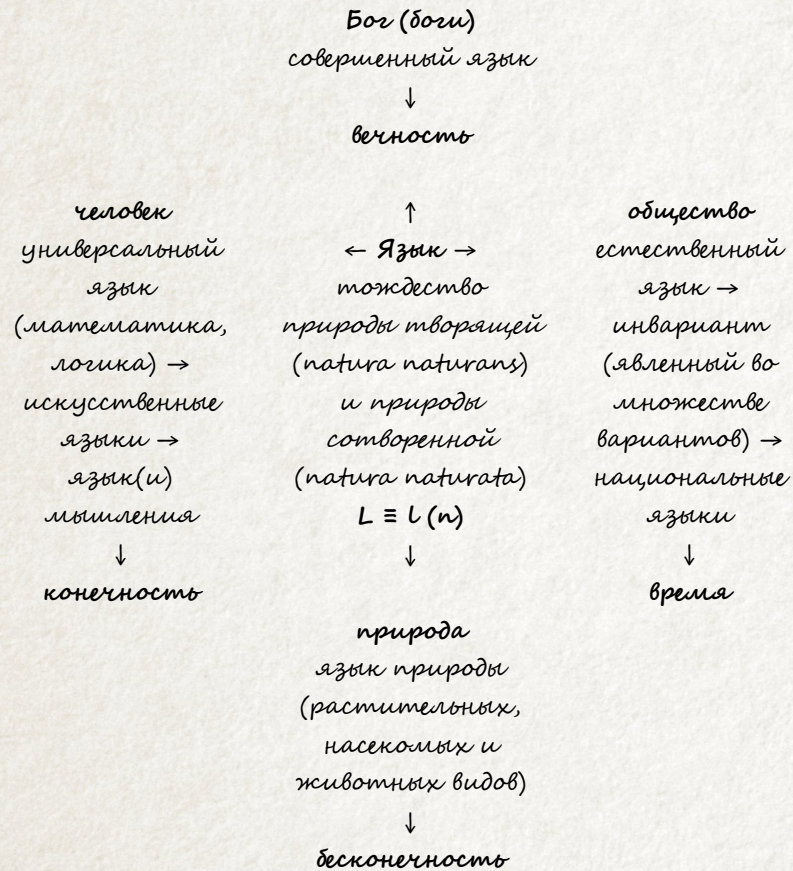 Бог (боги)
совершенный язык
↓
вечность
человек
универсальный
язык
(математика,
логика) →
искусственные
языки →
язык(и)
мышления
↓
конечность
↑
← Язык →
тождество
природы творящей
(natura naturans)
и природы
сотворенной
(natura naturata)
L ≡ l (n)
↓
общество
естественный
язык →
инвариант
(явленный во
множестве
вариантов) →
национальные
языки
↓
время
природа
язык природы
(растительных,
насекомых и
животных видов)
↓
бесконечность